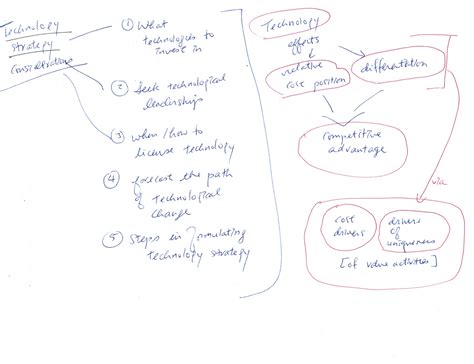 Technology
strategy
considerations
① What
technologies to
invest in
② Seek technological
leaderships
③ when/how to
license technology
④ forecast the path
of technological
change
⑤ Steps in formulating
technology strategy
Technology
effects
relative
cost position
differentiation
competitive
advantage
via
cost
drivers
drivers
of
uniqueness
[of value activities]